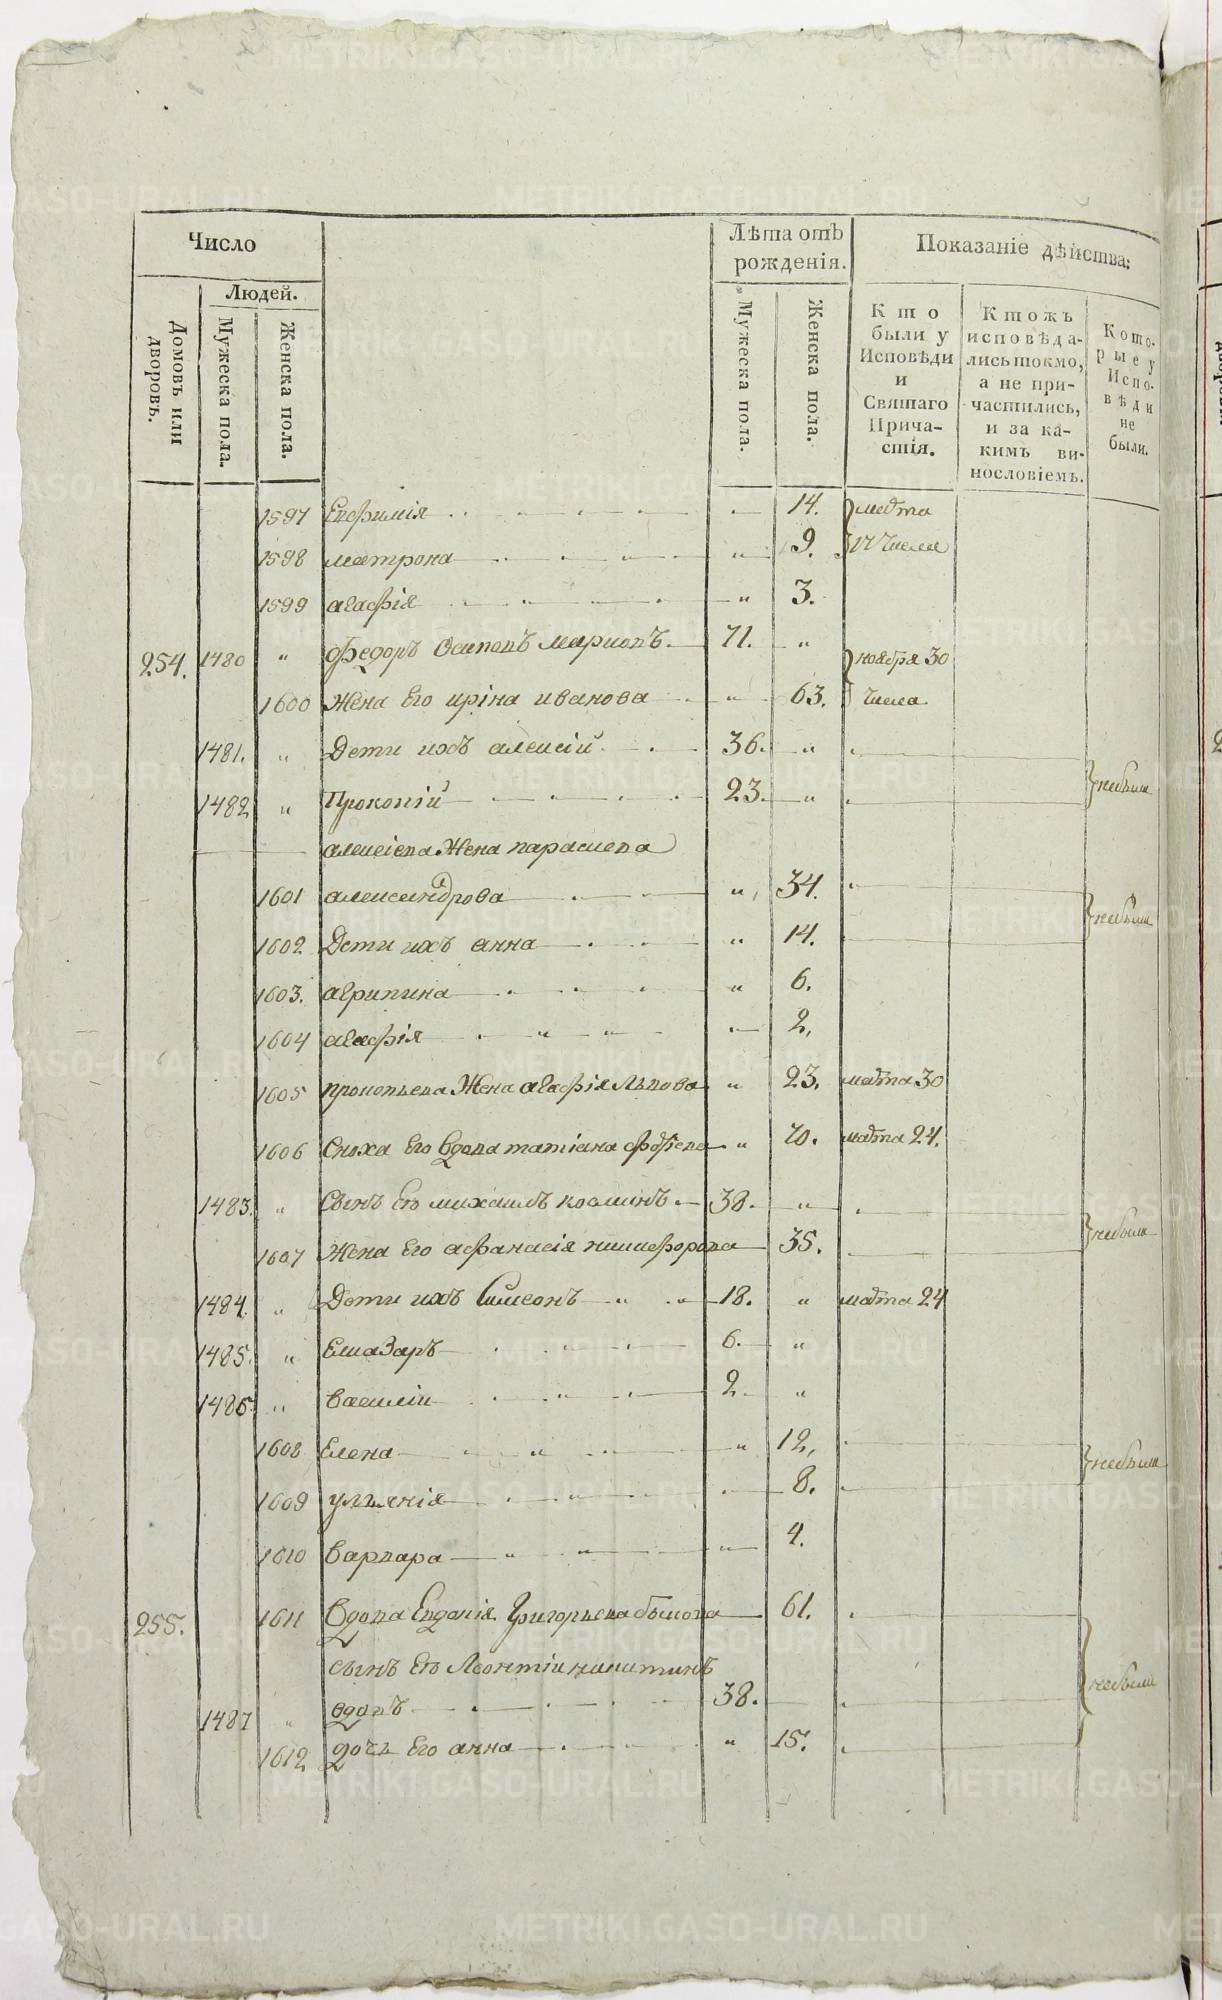 Число
Лѣта отъ рожденія.
Показаніе дѣйства:
Людей.
Домовъ или дворовъ.
Мужеска пола.
Женска пола.
Мужеска пола.
Женска пола.
Кто были у Исповѣди и Святаго Причастія.
Ктожъ исповѣдались токмо, а не причастились, и за какимъ винословіемъ.
Которые у Исповѣди не были.
1597 Евфимія 14. марта
1598 матрона „ 9. 17 числа
1599 агафія „ 3.
254. 1480 „ федоръ Осиповъ 71. „ ноября 30
1600 Жена Его иріна иванова „ 63. числа
1481. „ Дети ихъ алексій 36. „
1482 „ Прокопій 23. „ небыли
алексіева Жена параскева
1601 александрова „ 34.
1602 Дети ихъ анна „ 14. небыли
1603. агрипина „ 6.
1604 агафія 2,
1605 прокопьева Жена агафія Львова „ 23. марта 30
1606 Сноха Его вдова татіана „ 70. марта 24.
1483. „ Сынъ Его михаилъ косминъ 38. „
1607 Жена Его афанасія никифорова 35. небыли
1484. „ Дети ихъ Симеонъ 18. „ марта 24
1485. „ Елиазаръ 6. „
1486 „ василіи 2. „
1608 Елена „ 12,
1609 ульянія 8. небыли
1610 варвара „ 4.
255. 1611 Вдова Евдокія Григорьева быкова 61.
сынъ Его Леонтіи никитинъ
1487 „ вдовъ 38. небыли
1612 дочь Его анна „ 15.
METRIKI.GASO-URAL.RU